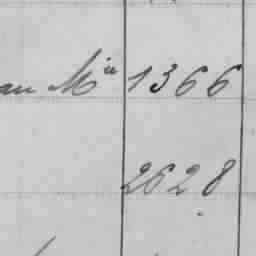 au Mia 1366
2628